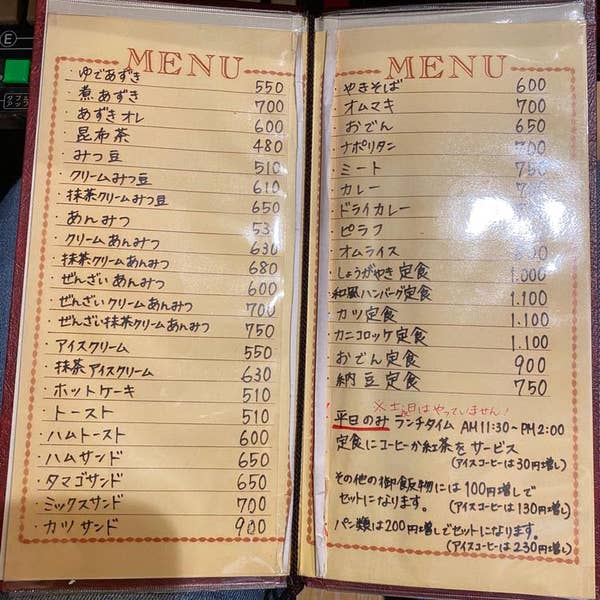 MENU
・ゆであずき 550
・煮あずき 700
・あずきオレ 600
・昆布茶 480
・みつ豆 510
・クリームみつ豆 610
・抹茶クリームみつ豆 650
・あんみつ
・クリームあんみつ 630
・抹茶クリームあんみつ 680
・ぜんざいあんみつ 600
・ぜんざいクリームあんみつ 700
・ぜんざい抹茶クリームあんみつ 750
・アイスクリーム 550
・抹茶アイスクリーム 630
・ホットケーキ 510
・トースト 510
・ハムトースト 600
・ハムサンド 650
・タマゴサンド 650
・ミックスサンド 700
・カツサンド 900
MENU
・やきそば 600
・オムマキ 700
・おでん 650
・ナポリタン 700
・ミート 750
・カレー
・ドライカレー
・ピラフ
・オムライス
・しょうがやき定食 1.000
・和風ハンバーグ定食 1.100
・カツ定食 1.100
・カニコロッケ定食 1.100
・おでん定食 900
・納豆定食 750
※土曜日はやっていません!
平日のみ ランチタイム AM11:30~PM2:00
定食にコーヒーか紅茶をサービス
(アイスコーヒーは30円増し)
その他の御飯物には100円増しで
セットになります。 (アイスコーヒーは130円増し)
パン類は200円増しでセットになります。
(アイスコーヒーは230円増し)